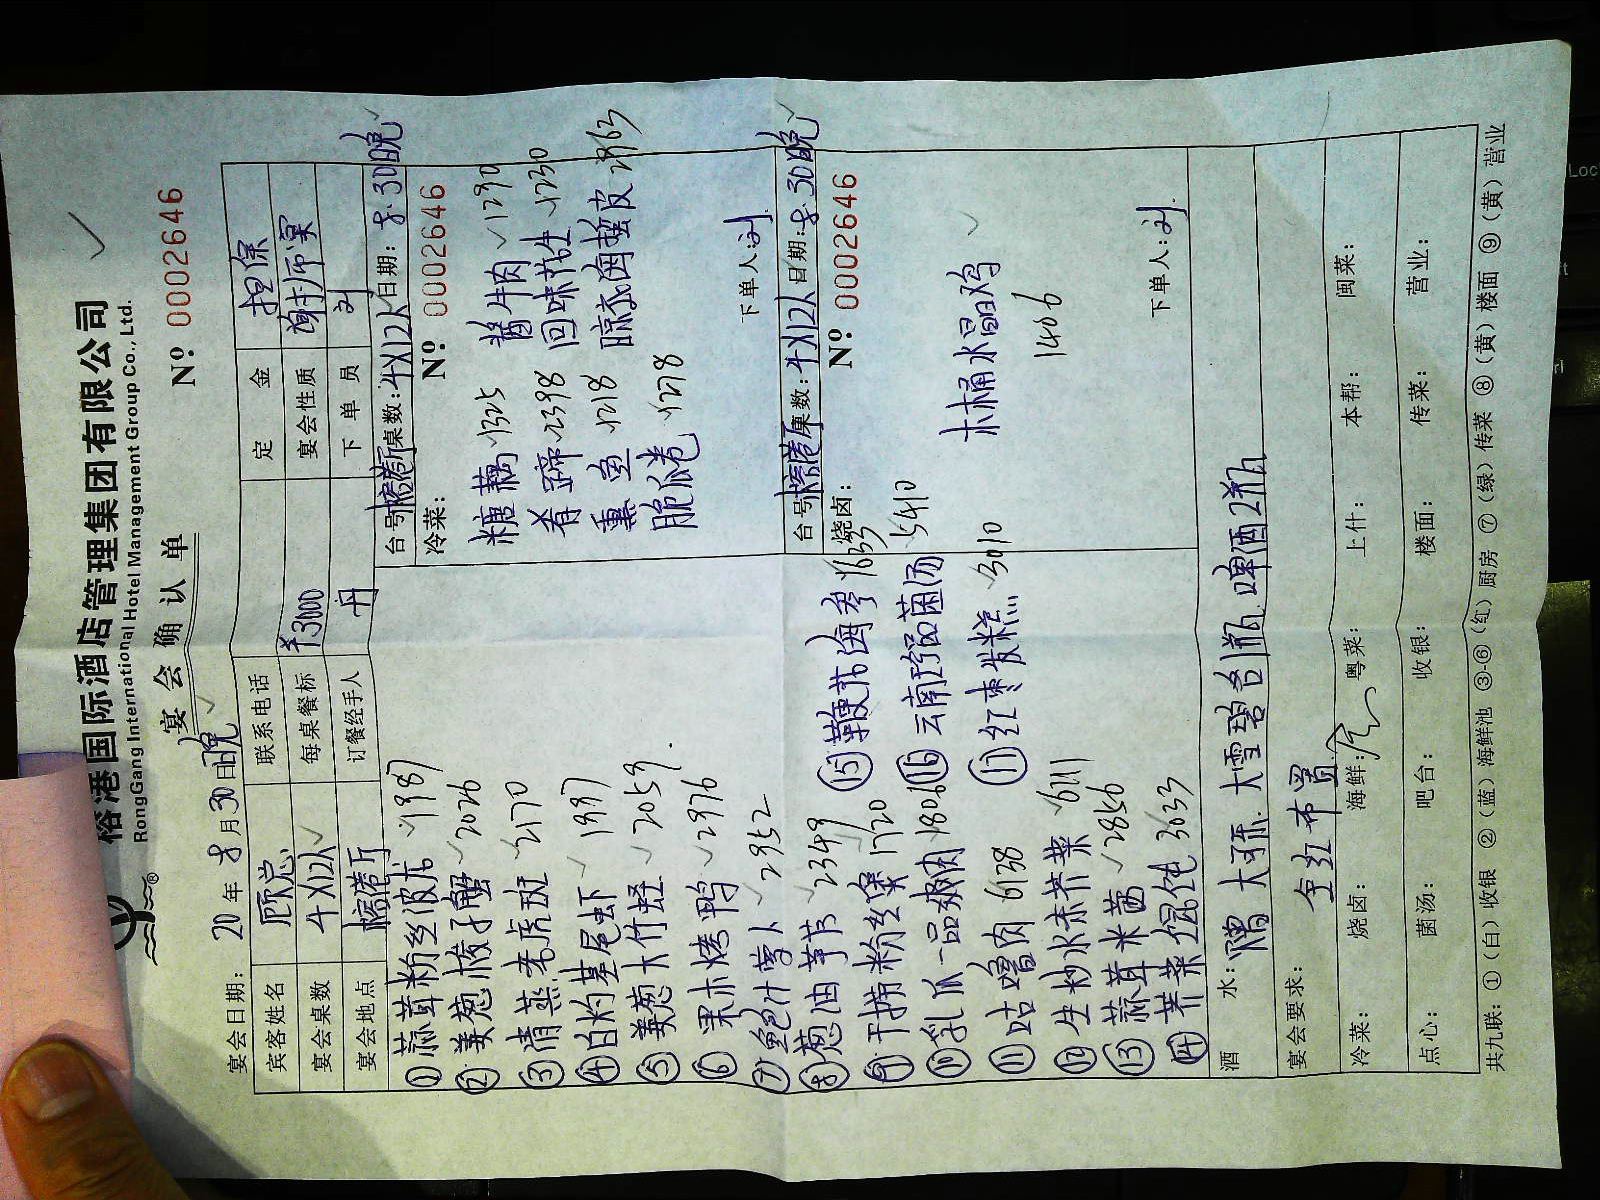 榕港国际酒店管理集团有限公司
RongGang International Hotel Management Group Co., Ltd.
宴会确认单
№ 0002646
宴会日期: 20 年 8 月 30 日 晚
宾客姓名 顾总 联系电话 定金 担保
宴会桌数 4×12人 每桌餐标 ¥3000 宴会性质 谢师宴
宴会地点 榕港厅 订餐经手人 丹 下单员 刘
① 蒜茸粉丝皮龙 1987
② 姜葱梭子蟹 2026
③ 清蒸老虎斑 2170
④ 白灼基尾虾 1997
⑤ 姜葱大竹蛏 2059
⑥ 果木烤鸭 2976
⑦ 鲍汁萝卜 2952
⑧ 葱油芋艿 2349
⑨ 干捞粉丝煲 1720
⑩ 乳瓜一品嫩肉 1806
⑪ 咕噜肉 6138
⑫ 生炒水东芥菜 6111
⑬ 蒜茸米苋 2856
⑭ 荠菜馄饨 3033
⑮ 鞭花海参 1633
⑯ 云南珍品菌汤 5410
⑰ 红枣发糕 3010
台号 榕港厅 桌数: 4×12人 日期: 8.30晚
冷菜: № 0002646
糖藕 1325 酱牛肉 1290
肴蹄 2398 回味花生 1230
熏鱼 1218 脆瓜卷 1278
凉衣海蜇皮 2863
下单人: 刘
台号 榕港厅 桌数: 4×12人 日期: 8.30晚
烧卤: № 0002646
木桶水晶鸡
1406
下单人: 刘
酒水: 赠大可乐、大雪碧各1瓶、啤酒2瓶
宴会要求: 全红布置
冷菜: 烧卤: 海鲜: 粤菜: 上什: 本帮: 闽菜:
点心: 菌汤: 吧台: 收银: 楼面: 传菜: 营业:
共九联: ①(白)收银 ②(蓝)海鲜池 ③-⑥(红)厨房 ⑦(绿)传菜 ⑧(黄)楼面 ⑨(黄)营业